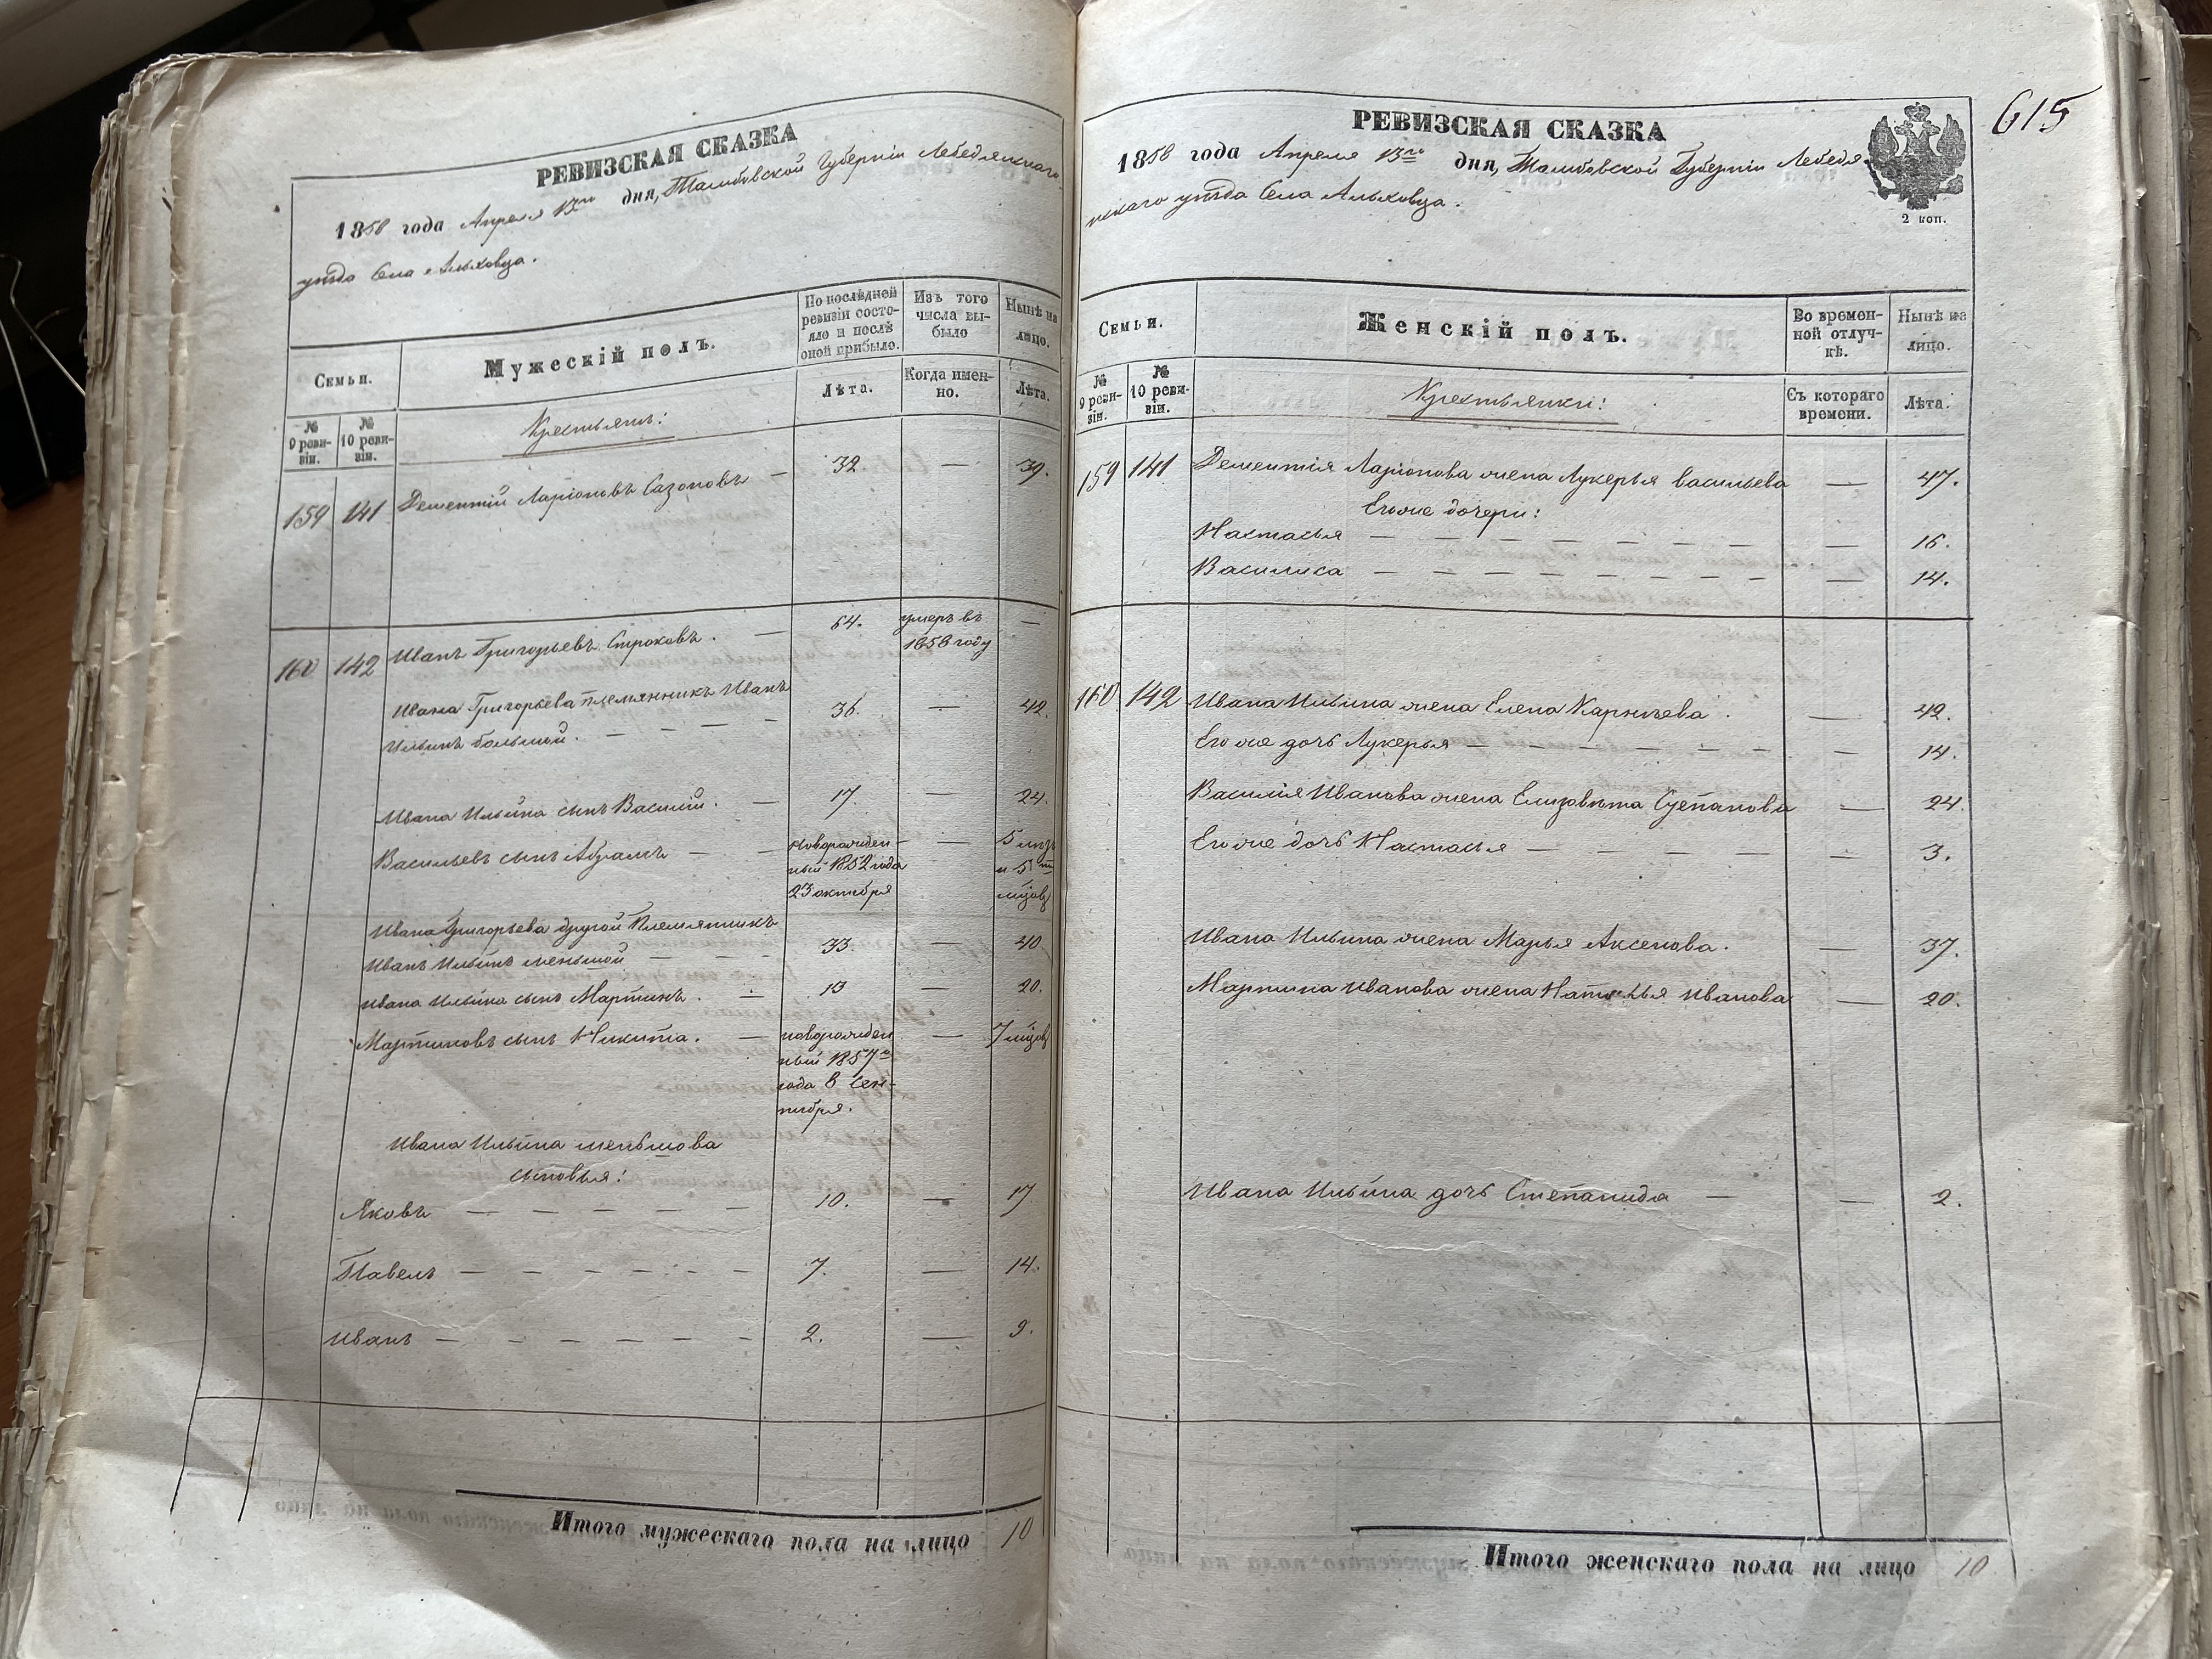 РЕВИЗСКАЯ СКАЗКА
1858 года Апреля 13го дня, Тамбовской Губерніи Лебедянскаго
уѣзда Села Ольховца.
Семьи.
Мужескій полъ.
По послѣдней ревизіи состояло и послѣ оной прибыло.
Изъ того числа выбыло
Ныне на лицо.
№ 9 ревизіи.
№ 10 ревизіи.
Крестьянъ:
Лѣта.
Когда именно.
Лѣта.
159 141 Дементій Ларіоновъ Сазоновъ — 32. — 39.
160 142 Иванъ Григорьевъ Строковъ. — 64. умеръ въ 1858 году —
Ивана Григорьева племянникъ Иванъ
Ильинъ большой. — — — 36. — 42.
Ивана Ильина сынъ Василій. — 17. — 24.
Васильевъ сынъ Абрамъ — — новорожден-
ный 1852 года
23 октября — 5 лѣтъ
и 5ть
мѣсяц
Ивана Григорьева другой Племянникъ
Иванъ Ильинъ меньшой — — — 33. — 40.
Ивана Ильина сынъ Мартинъ. — 13 — 20.
Мартиновъ сынъ Никита. — новорожден
ный 1857го
года в сен-
тября. — 7 мѣсяц
Ивана Ильина меньшова
сыновья:
Яковъ — — — — — — 10. — 17.
Павелъ — — — — — — 7. — 14.
Иванъ — — — — — — 2. — 9.
Итого мужескаго пола на лицо 10
РЕВИЗСКАЯ СКАЗКА
615
1858 года Апреля 13го дня, Тамбовской Губерніи Лебедя-
нскаго уѣзда Села Ольховца.
2 коп.
Семьи.
Женскій полъ.
Во временной отлучкѣ.
Нынѣ на лицо.
№ 9 ревизіи.
№ 10 ревизіи.
Крестьянки:
Съ котораго времени.
Лѣта.
159 141 Дементія Ларіонова жена Лукерья васильева — 47.
Егоже дочери:
Настасья — — — — — — — — 16.
Василиса — — — — — — — — 14.
160 142 Ивана Ильина жена Елена Карнѣева. — 42.
Егоже дочь Лукерья — — — — — — — 14.
Василія Иванова жена Елизавѣта Степанова — 24.
Егоже дочь Настасья — — — — — — 3.
Ивана Ильина жена Марья Аксенова. — 37.
Мартина Иванова жена Наталья Иванова — 20.
Ивана Ильина дочь Степанида — — 2.
Итого женскаго пола на лицо 10